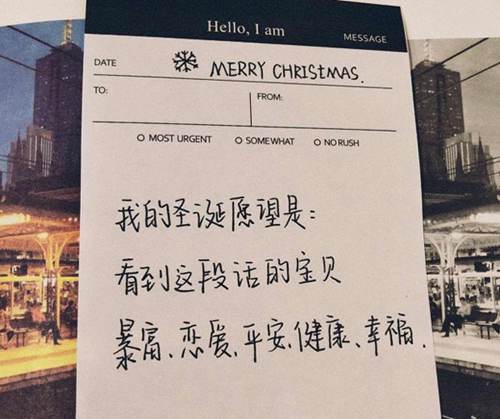 Hello, I am
MESSAGE
DATE ❄ MERRY CHRISTMAS.
TO: FROM:
O MOST URGENT O SOMEWHAT O NO RUSH
我的圣诞愿望是：
看到这段话的宝贝
暴富、恋爱、平安、健康、幸福.